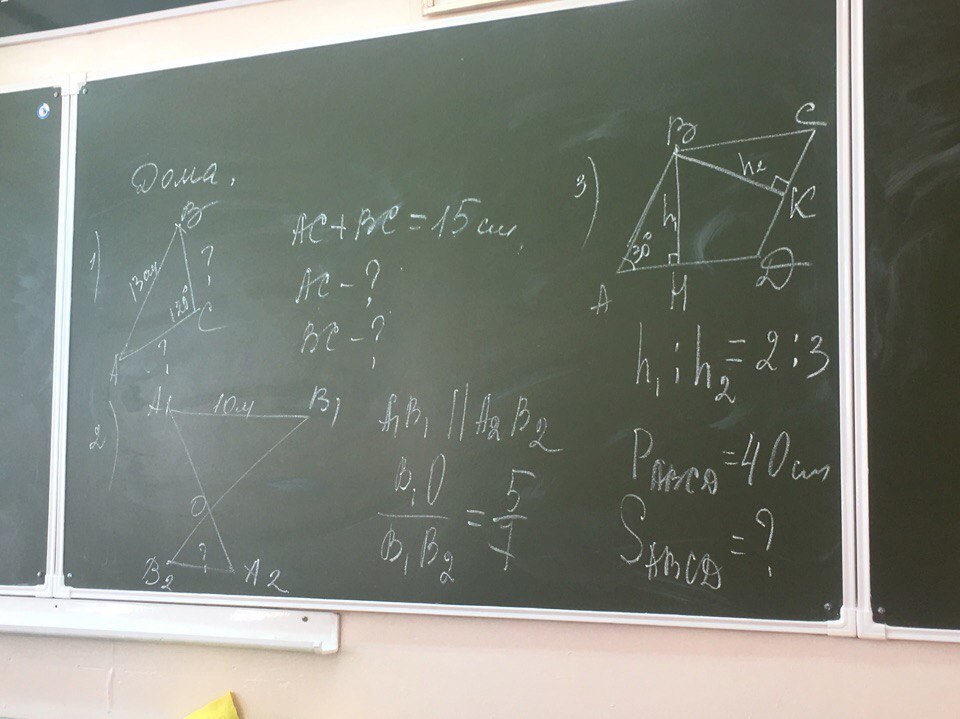 Дома.
1)
B
13 см
?
120°
C
A
?
AC+BC=15 см
AC-?
BC-?
2)
A₁
10 м
B₁
O
B₂
?
A₂
A₁B₁ || A₂B₂
B₁O / B₁B₂ = 5/7
3)
B
C
h₂
K
h₁
30°
A
M
D
h₁ : h₂ = 2 : 3
P_ABCD = 40 см
S_ABCD = ?